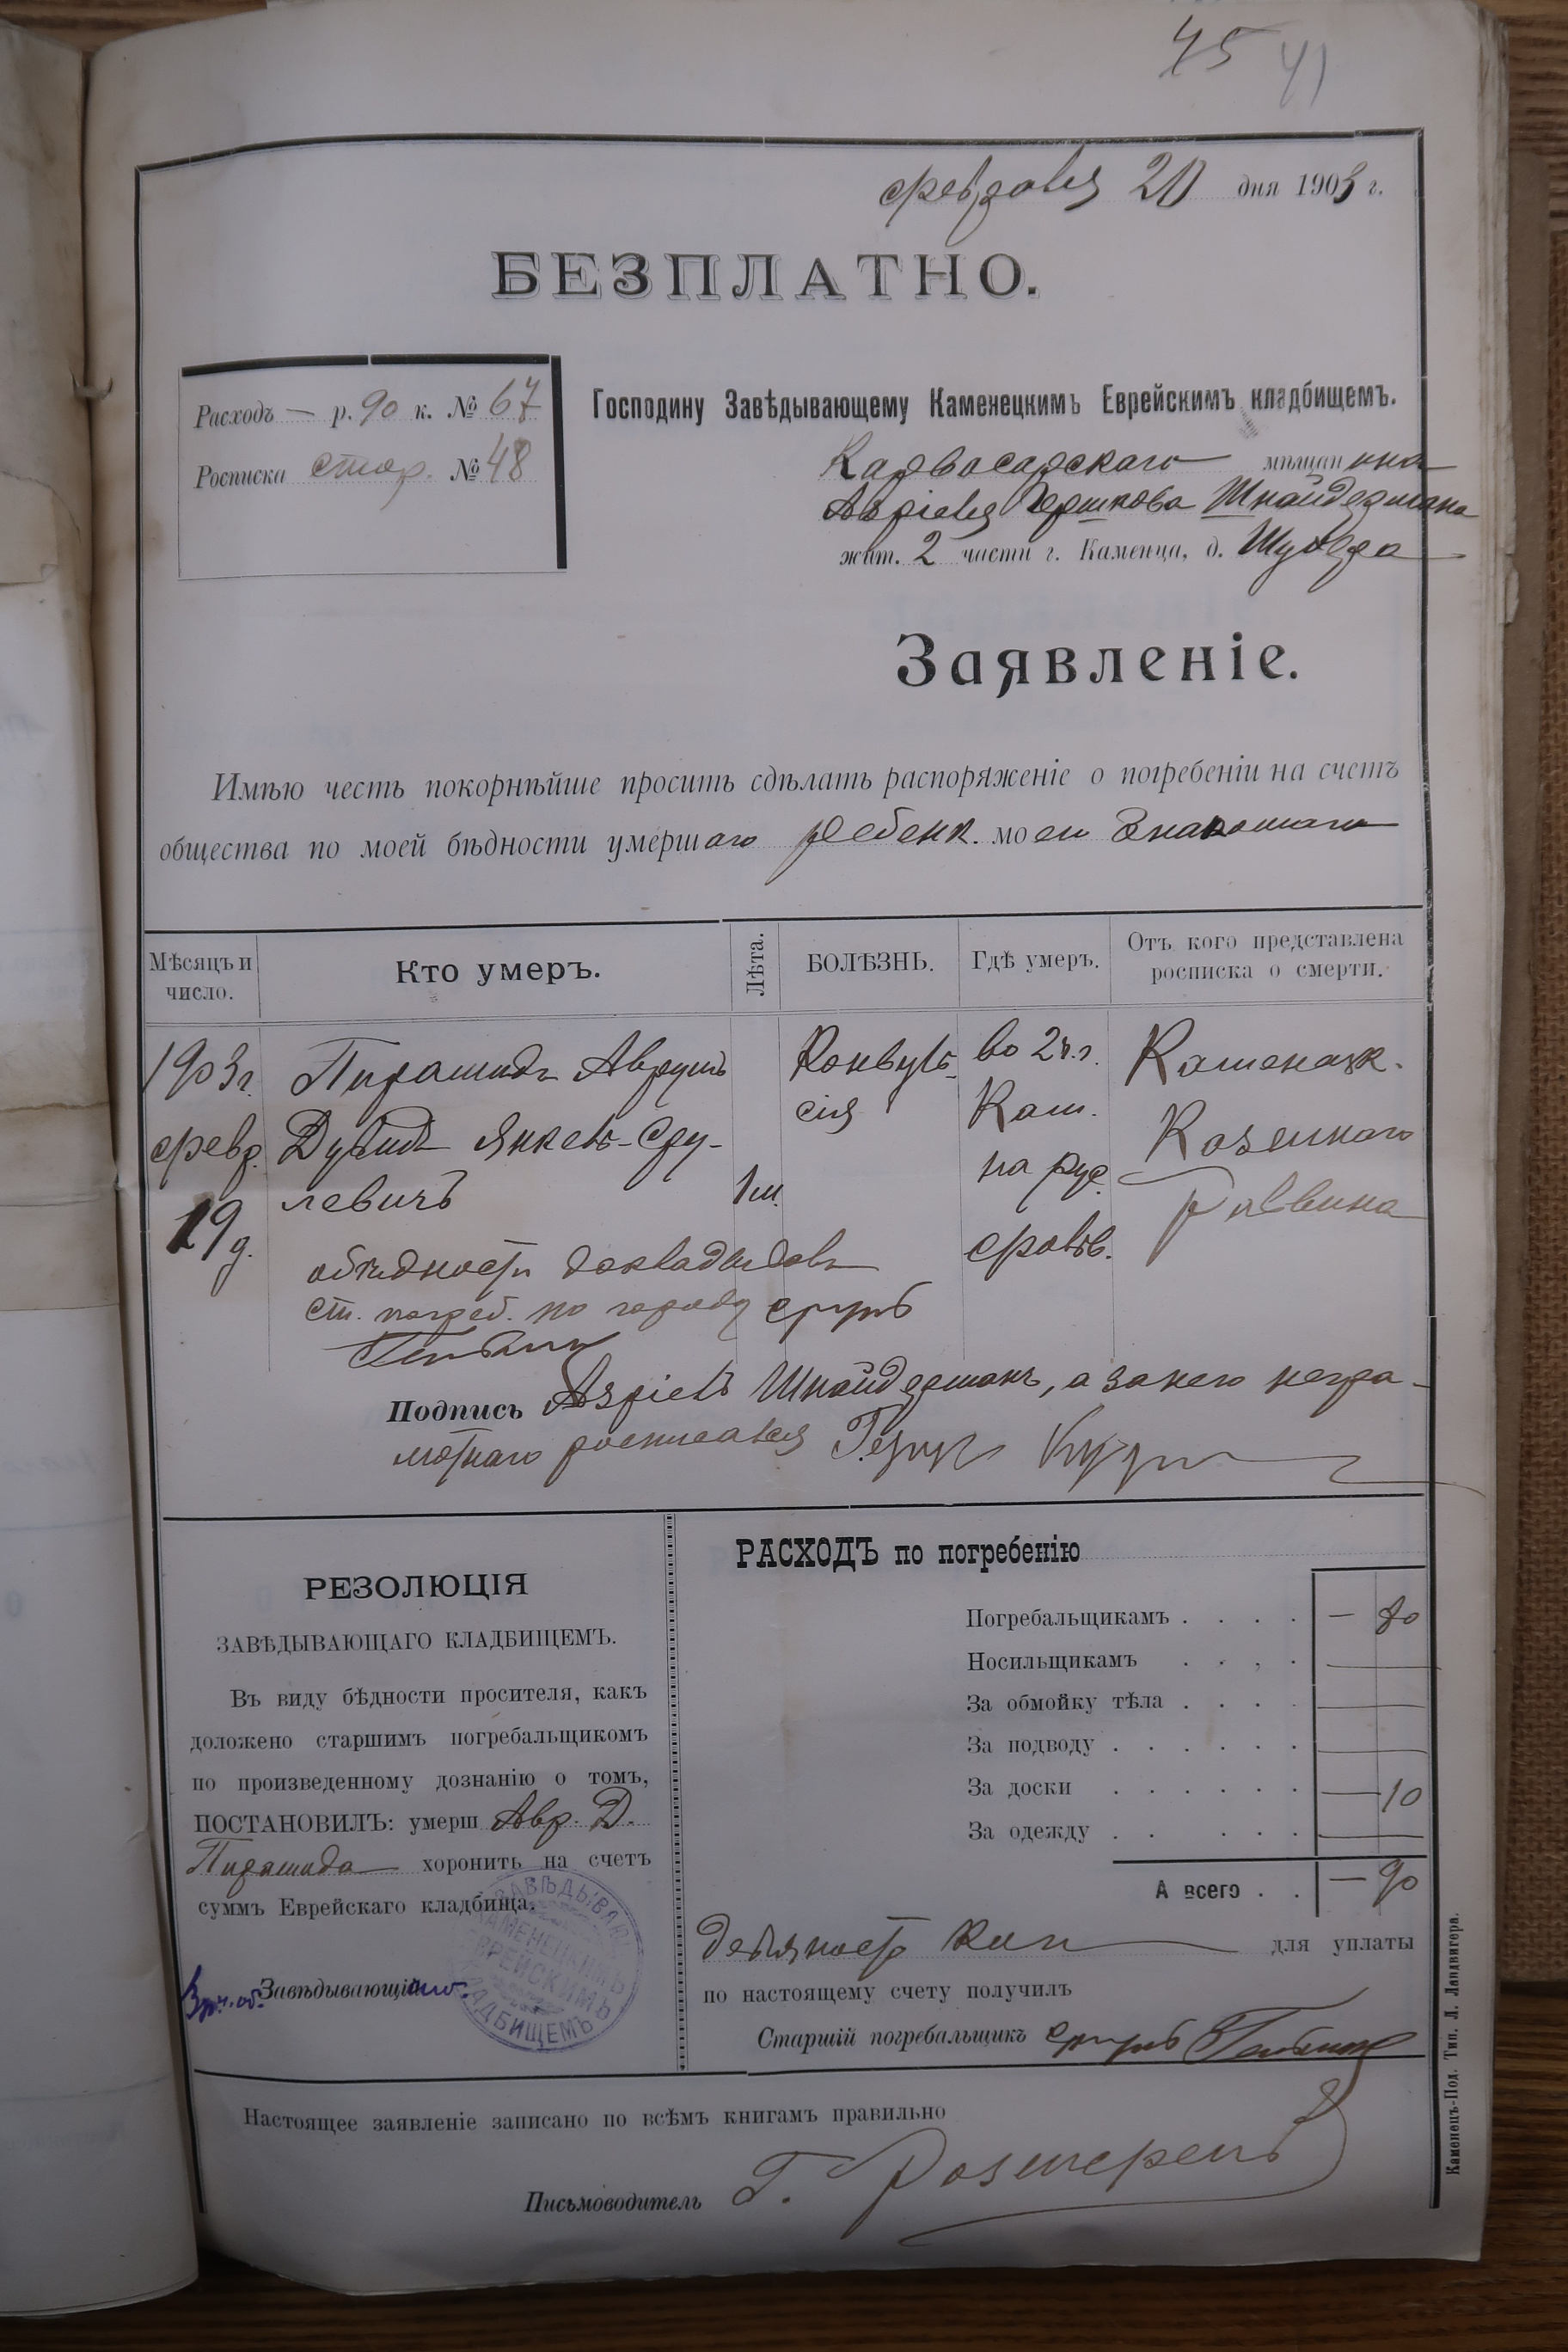 45 41
февраля 20 дня 1903 г.
БЕЗПЛАТНО.
Расходъ — р. 90 к. № 67
Росписка стор. № 48
Господину Завѣдывающему Каменецкимъ Еврейскимъ кладбищемъ.
Карвасарскаго мѣщанина
Азріеля Гершкова Шнайдермана
жит. 2 части г. Каменца, д.
Заявленіе.
Имѣю честь покорнѣйше просить сдѣлать распоряженіе о погребеніи на счетъ
общества по моей бѣдности умершаго ребенк. моего знакомаго
Мѣсяцъ и число.
Кто умеръ.
Лѣта.
БОЛѢЗНЬ.
Гдѣ умеръ.
Отъ кого представлена росписка о смерти.
1903 г. Пирамидъ Аврумъ Конвуль- во 2 ч. г. Каменецк.
февр. Дувидъ Янкель-Сру- сія Кам. Казеннаго
19 д. левичъ 1 м. на рус. раввина
фольв.
о бѣдности докладывалъ
ст. погреб. по городу
Подпись Азріель Шнайдерманъ, а за него негра-
мотнаго росписался
РЕЗОЛЮЦІЯ
ЗАВѢДЫВАЮЩАГО КЛАДБИЩЕМЪ.
Въ виду бѣдности просителя, какъ
доложено старшимъ погребальщикомъ
по произведенному дознанію о томъ,
ПОСТАНОВИЛЪ: умерш Авр. Д.
Пирамида хоронить на счетъ
суммъ Еврейскаго кладбища.
Завѣдывающій
ЗАВѢДЫВАЮЩ
КАМЕНЕЦКИМЪ
ЕВРЕЙСКИМЪ
КЛАДБИЩЕМЪ
РАСХОДЪ по погребенію
Погребальщикамъ . . . . — 80
Носильщикамъ . . . . —
За обмойку тѣла . . . . —
За подводу . . . . . . —
За доски . . . . . . — 10
За одежду . . . . . —
А всего . . — 90
девяносто коп для уплаты
по настоящему счету получилъ
Старшій погребальщикъ
Настоящее заявленіе записано по всѣмъ книгамъ правильно
Письмоводитель Г.
Каменецъ-Под. Тип. Л. Ландвигера.